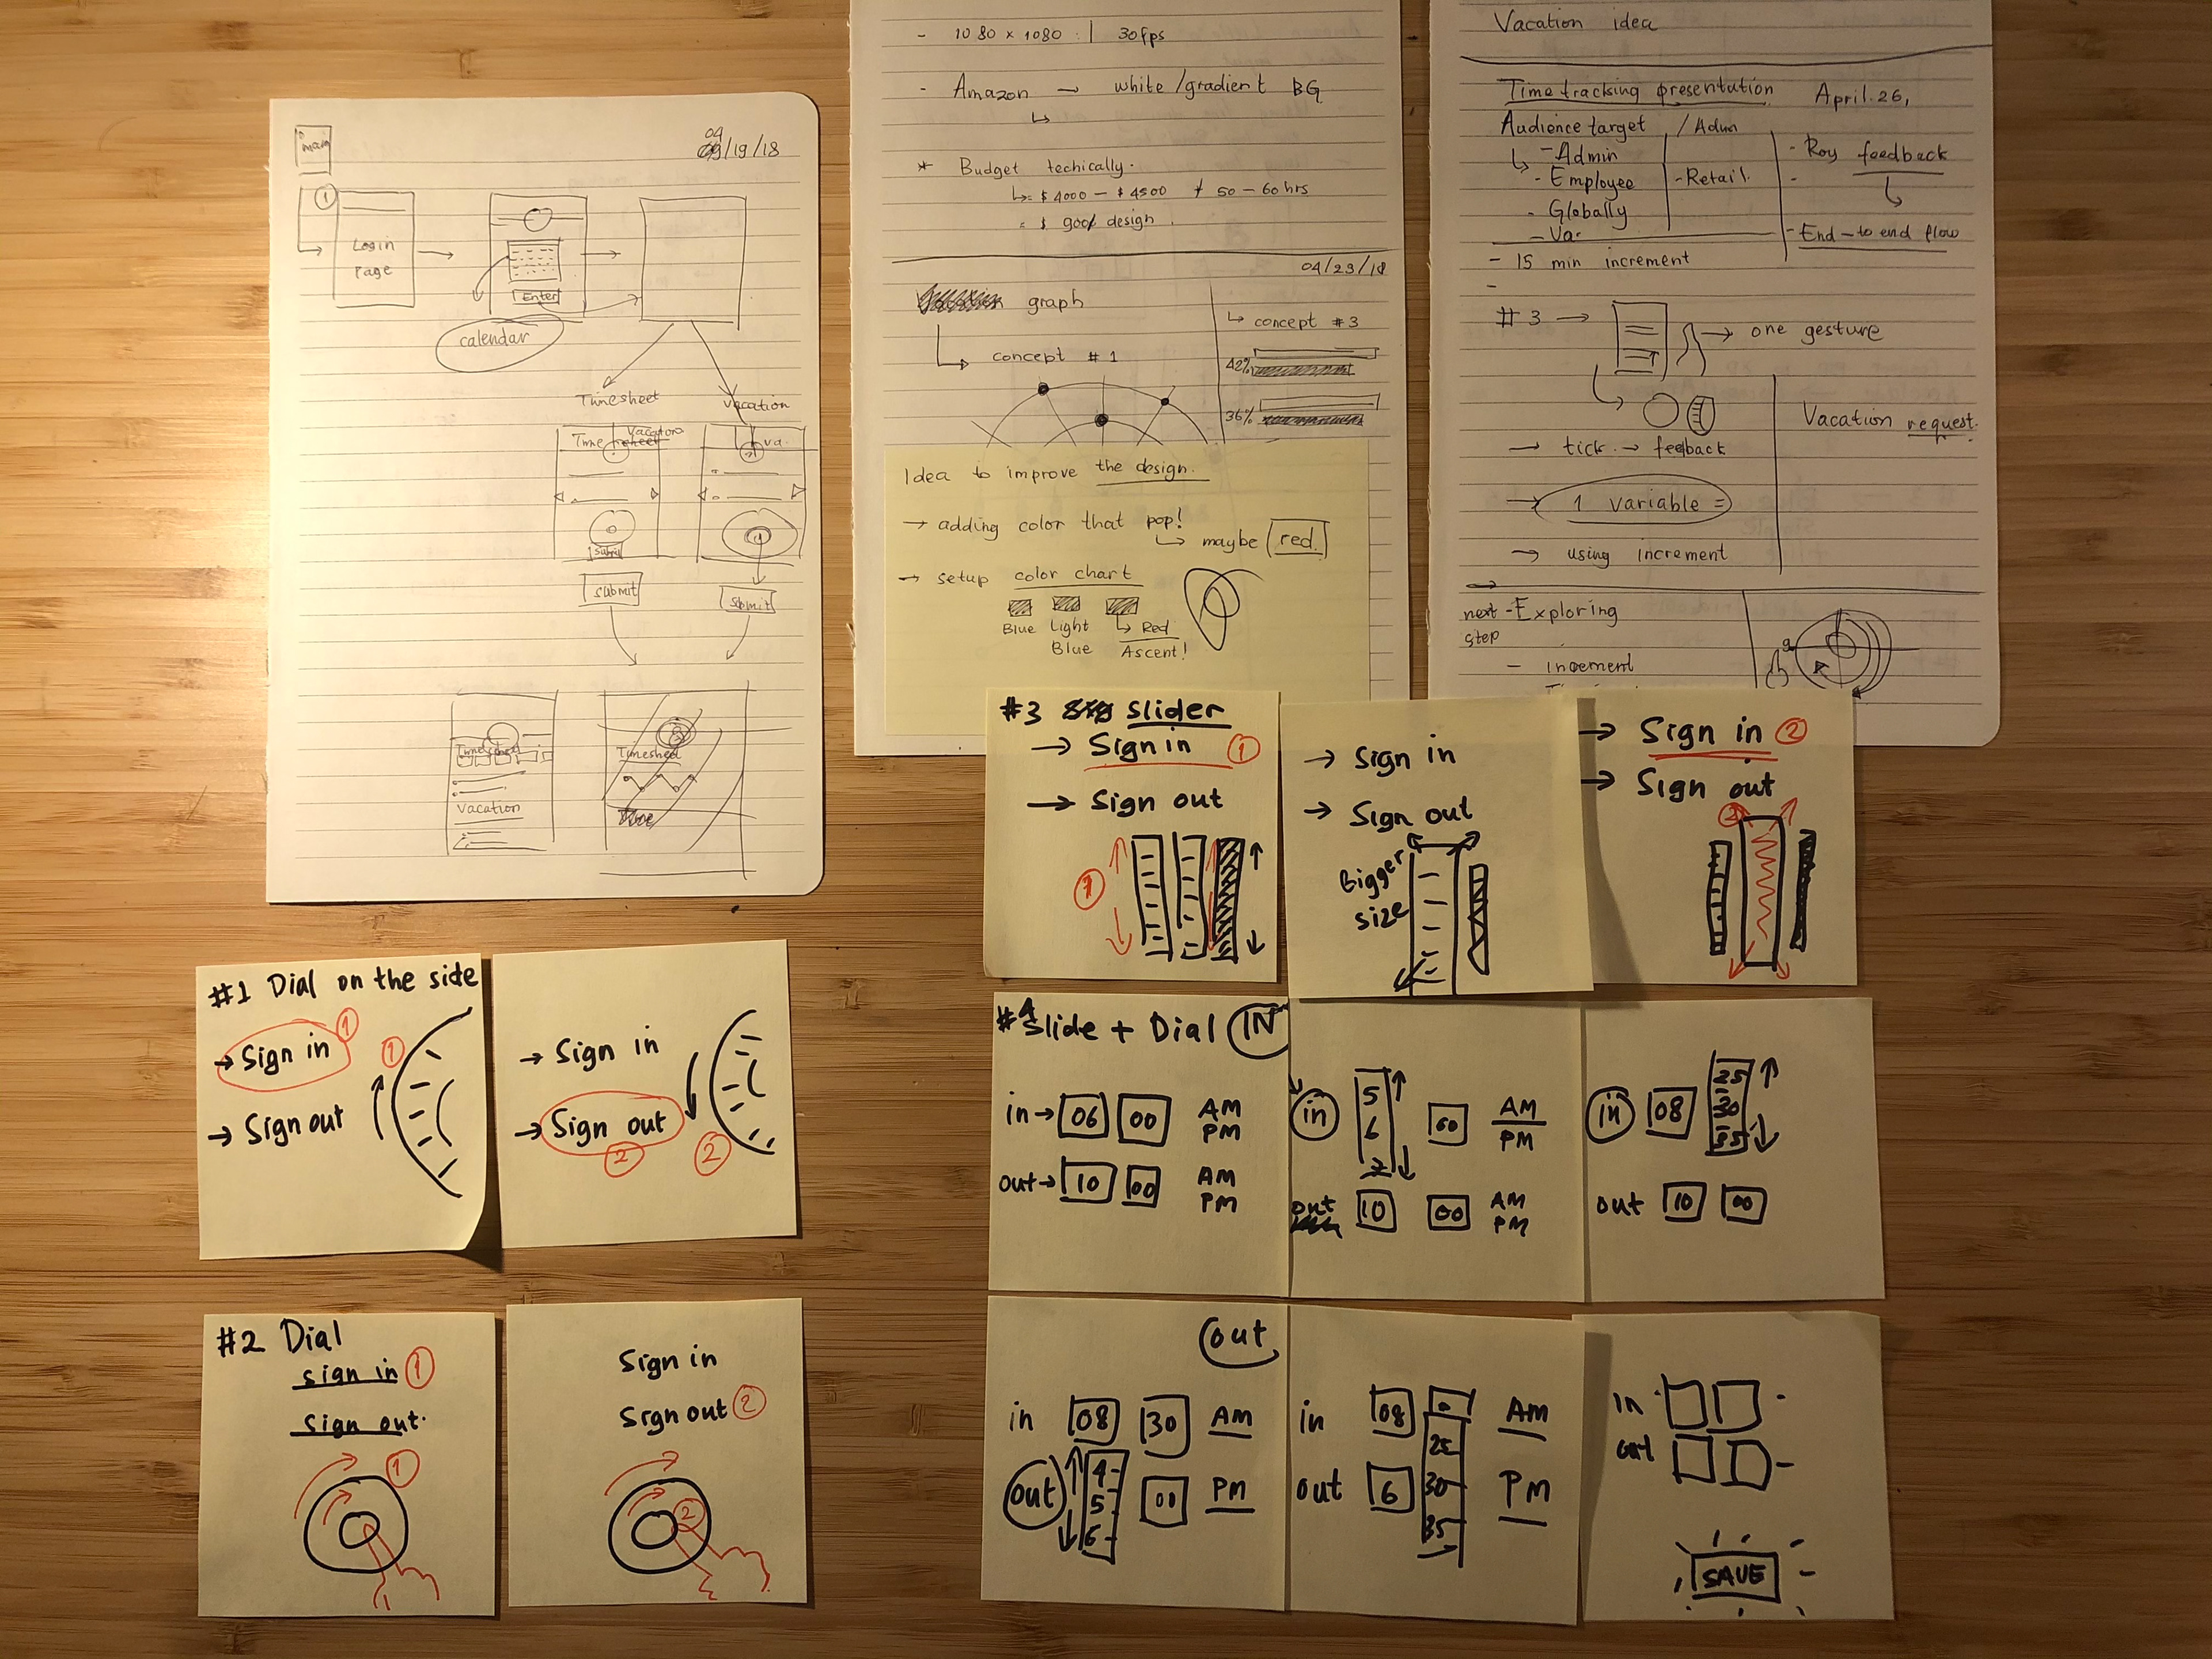 main
04/19/18
1
Login
Page
Enter
calendar
Timesheet
Vacation
Vacation
Time sheet
va.
Submit
submit
submit
Timesheet
Vacation
- 1080 x 1080 | 30fps
- Amazon → white/gradient BG
* Budget techically.
$4000 - $4500 / 50 - 60 hrs
= $ good design
04/23/18
graph
concept #1
concept #3
42%
36%
Idea to improve the design.
→ adding color that pop!
maybe red.
→ setup color chart
Blue Light Red
Blue Ascent!
Vacation idea
Time tracking presentation April. 26,
Audience target / Admin
- Admin
- Employee
- Globally
- Va.
- Retail.
- Roy feedback
- End - to end flow
- 15 min increment
#3 → → one gesture
→ tick. → feedback
→ 1 variable =
→ using increment
Vacation request.
next - Exploring
step
- increment
#3 Slider
→ Sign in 1
→ Sign out
1
→ Sign in
→ Sign out
Bigger
size
→ Sign in 2
→ Sign out
2
#1 Dial on the side
→ Sign in 1
1
→ Sign out
→ Sign in
→ Sign out
2
2
#2 Dial
sign in 1
sign out.
1
Sign in
Sign out 2
2
#4 Slide + Dial IN
in → 06 00 AM
PM
out → 10 00 AM
PM
in 5 00 AM
6 PM
7
out 10 00 AM
PM
in 08 25
30
35
out 10 00
out
in 08 30 AM
out 4 00 PM
5
6
in 08 0 AM
25
out 6 30 PM
35
in
out
SAVE